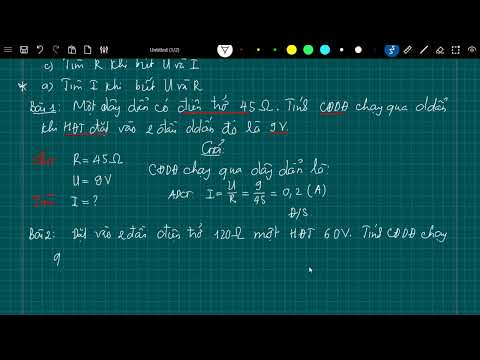 Untitled (1/2)
c) Tìm R khi biết U và I
* a) Tìm I khi biết U và R
Bài 1: Một dây dẫn có điện trở 45Ω. Tính CĐDĐ chạy qua ddẫn
khi HĐT đặt vào 2 đầu ddẫn đó là 9V.
Giải
R = 45Ω
CĐDĐ chạy qua dây dẫn là:
U = 9V
ADCT: I = U/R = 9/45 = 0,2 (A)
I = ?
Đ/S
Bài 2: Đặt vào 2 đầu điện trở 120Ω một HĐT 60V. Tính CĐDĐ chạy
q